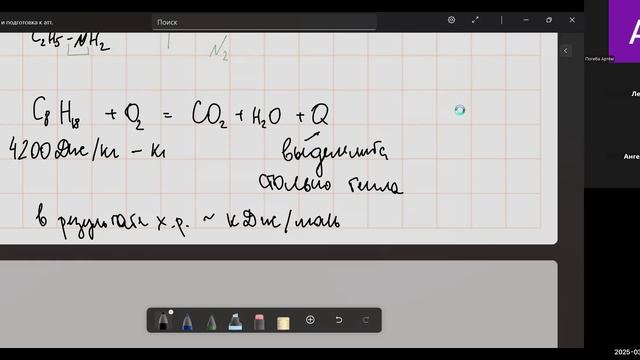 и подготовка к атт.
Поиск
C₂H₅-NH₂
N₂
C₈H₁₈ + O₂ = CO₂ + H₂O + Q
4200 Дж/кг - кг
выделилось
столько тепла
в результате х.р. ~ кДж/моль
А
Погеба Артём
Ле
Анге
2025-0